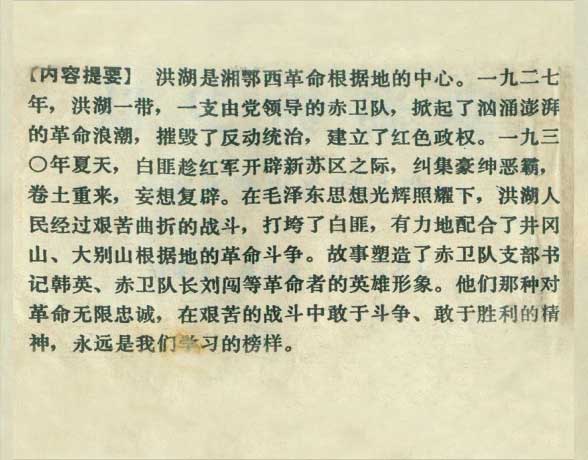 【内容提要】 洪湖是湘鄂西革命根据地的中心。一九二七
年，洪湖一带，一支由党领导的赤卫队，掀起了汹涌澎湃
的革命浪潮，摧毁了反动统治，建立了红色政权。一九三
〇年夏天，白匪趁红军开辟新苏区之际，纠集豪绅恶霸，
卷土重来，妄想复辟。在毛泽东思想光辉照耀下，洪湖人
民经过艰苦曲折的战斗，打垮了白匪，有力地配合了井冈
山、大别山根据地的革命斗争。故事塑造了赤卫队支部书
记韩英、赤卫队长刘闯等革命者的英雄形象。他们那种对
革命无限忠诚，在艰苦的战斗中敢于斗争、敢于胜利的精
神，永远是我们学习的榜样。